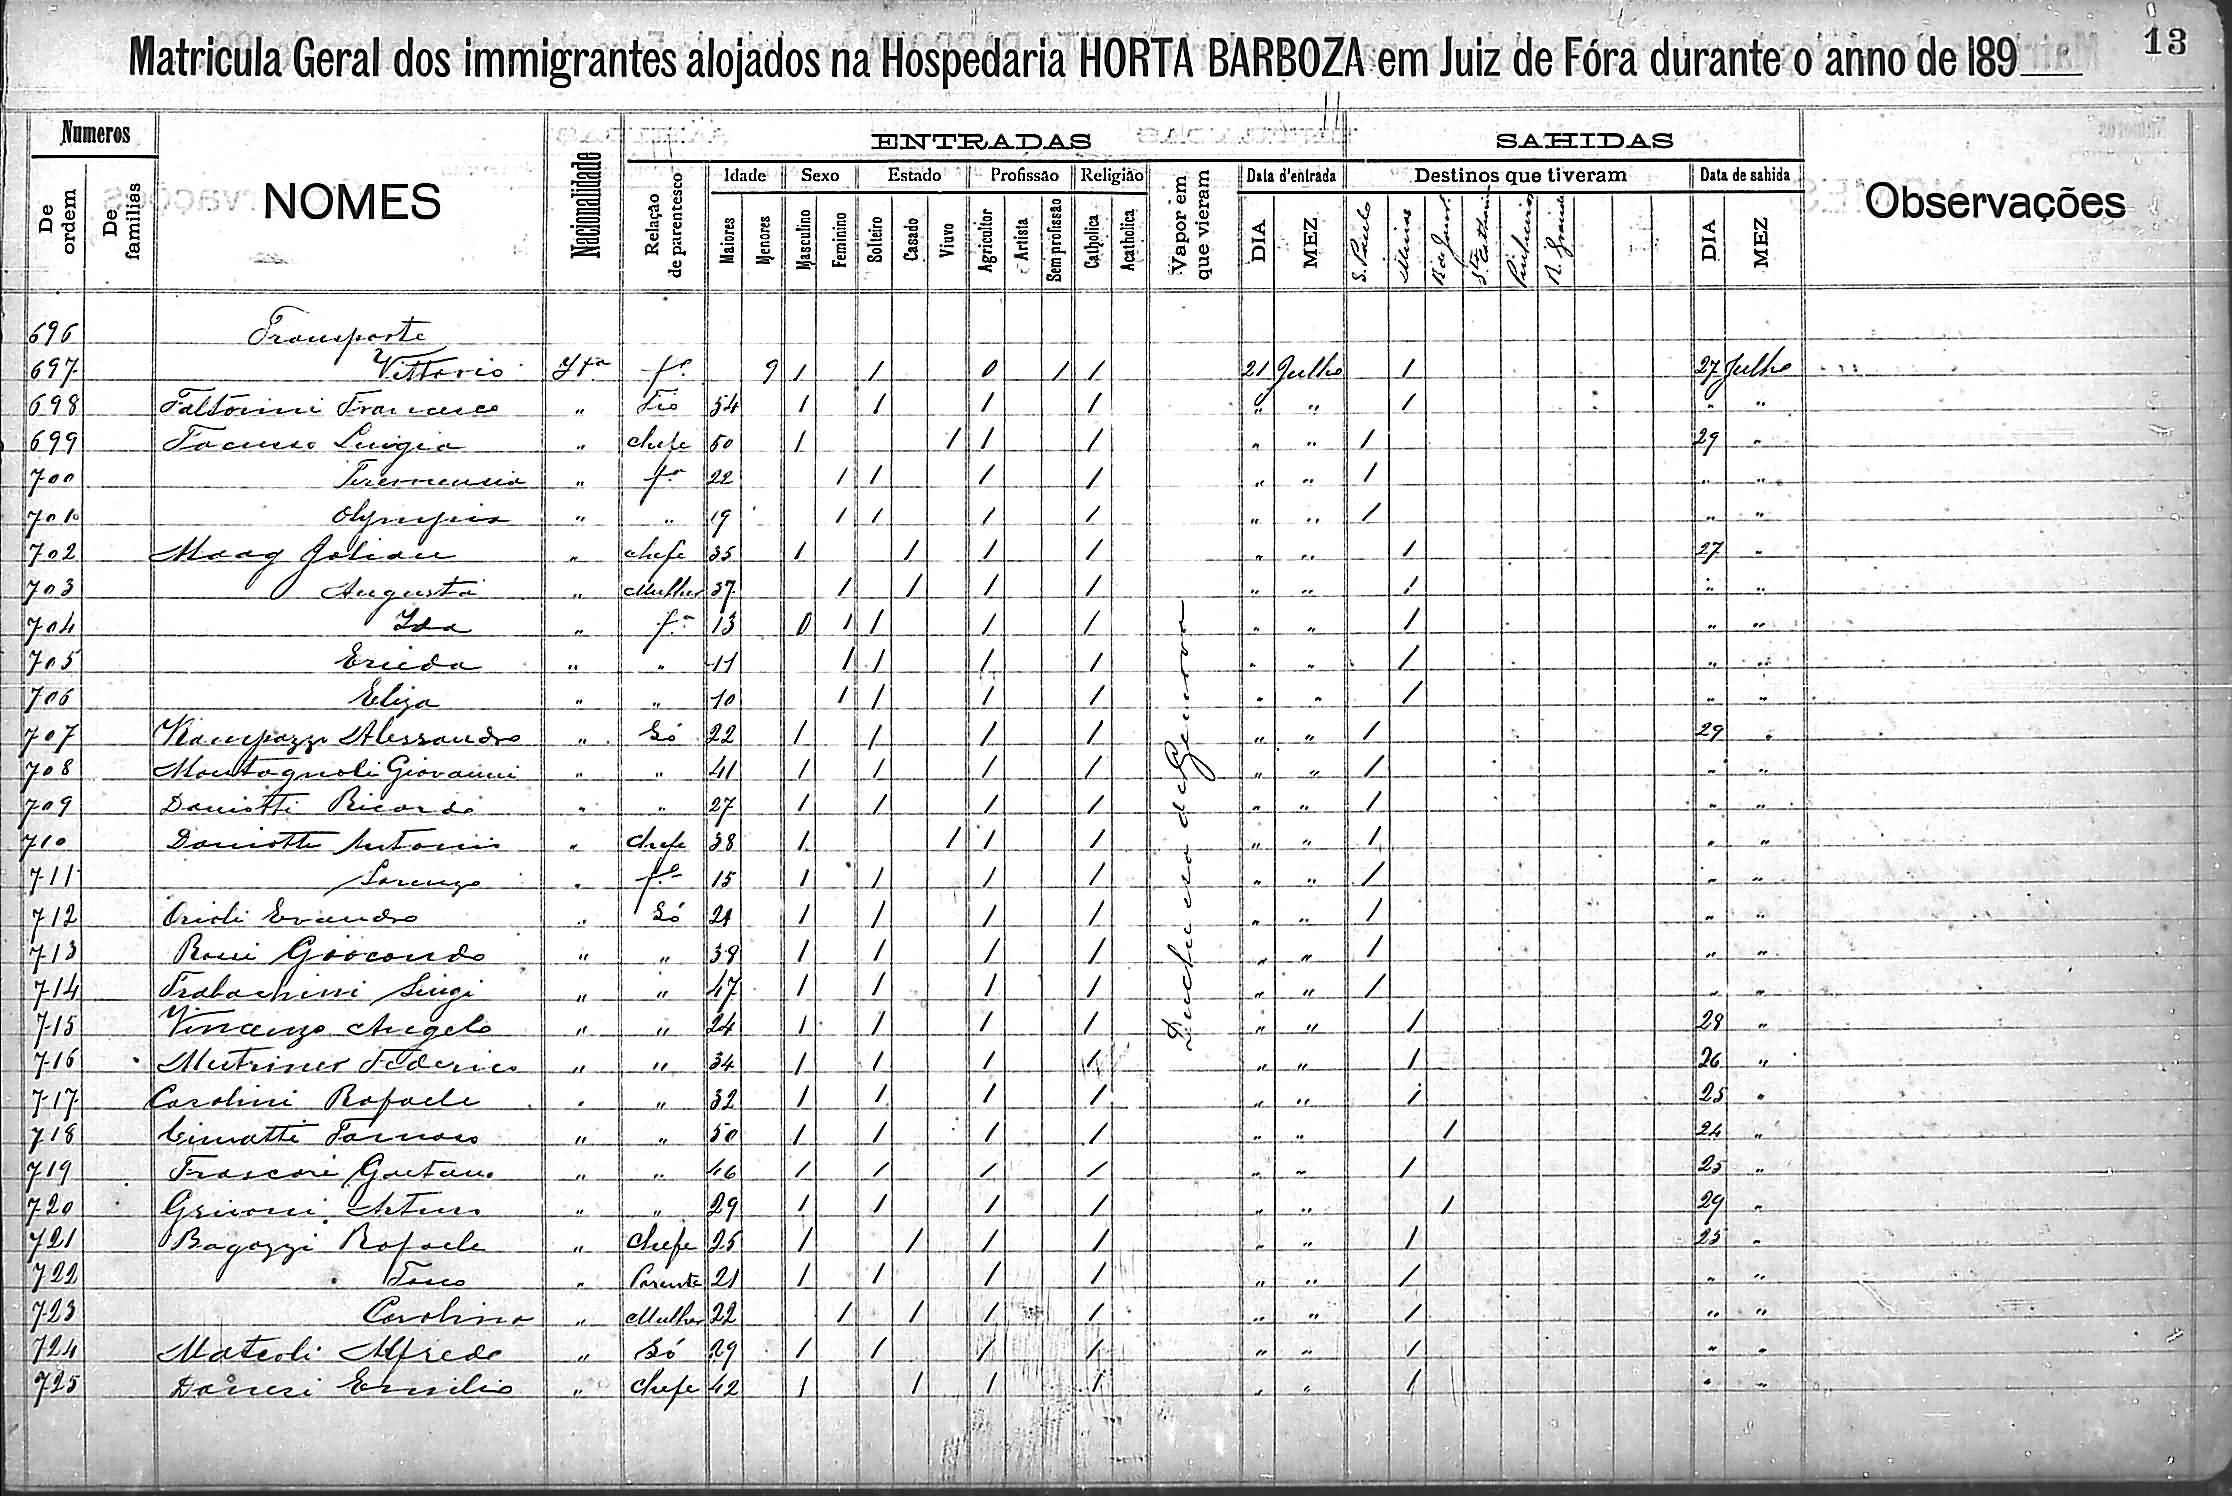 13
Matricula Geral dos immigrantes alojados na Hospedaria HORTA BARBOZA em Juiz de Fóra durante o anno de 189
Numeros NOMES Nacionalidade ENTRADAS SAHIDAS Observações
De ordem De familias Relação de parentesco Idade Sexo Estado Profissão Religião Vapor em que vieram Data d'entrada Destinos que tiveram Data de sahida
Maiores Menores Masculino Feminino Solteiro Casado Viuvo Agricultor Artista Sem profissão Catholica Acatholica DIA MEZ S. Paulo Minas Sta Catharina Pinheiro R. Grande DIA MEZ
696 Transporte
697 Vittorio Ita fo 9 1 1 0 1 1 21 Julho 1 27 Julho
698 Francesco " Tio 54 1 1 1 1 " " 1 " "
699 Luigia " chefe 50 1 1 1 1 " " 1 29 "
700 " fa 22 1 1 1 1 " " 1 " "
701 Olympia " " 19 1 1 1 1 " " 1 " "
702 Maag " chefe 35 1 1 1 1 " " 1 27 "
703 Augusta " Mulher 37 1 1 1 1 " " 1 " "
704 Ida " fa 13 0 1 1 1 1 " " 1 " "
705 " " 11 1 1 1 1 " " 1 " "
706 Eliza " " 10 1 1 1 1 " " 1 " "
707 Alessandro " Só 22 1 1 1 1 " " 1 29 "
708 Montagnoli Giovanni " " 41 1 1 1 1 " " 1 " "
709 Daniotti Ricardo " " 27 1 1 1 1 " " 1 " "
710 Daniotti Antonio " chefe 38 1 1 1 1 " " 1 " "
711 Lorenzo " fo 15 1 1 1 1 " " 1 " "
712 Orioli Evandro " Só 21 1 1 1 1 " " 1 " "
713 Giocondo " " 39 1 1 1 1 " " 1 " "
714 Luigi " " 47 1 1 1 1 " " 1 " "
715 Vincenzo Angelo " " 24 1 1 1 1 " " 1 28 "
716 Federico " " 34 1 1 1 1 " " 1 26 "
717 Carolini Rafaele " " 32 1 1 1 1 " " 1 25 "
718 Cimatti " " 50 1 1 1 1 " " 1 24 "
719 Frascari Gaetano " " 46 1 1 1 1 " " 1 25 "
720 Arturo " " 29 1 1 1 1 " " 1 29 "
721 Bagozzi Rafaele " Chefe 25 1 1 1 1 " " 1 25 "
722 " Parente 21 1 1 1 1 " " 1 " "
723 Carolina " Mulher 22 1 1 1 1 " " 1 " "
724 Mateoli Alfredo " Só 29 1 1 1 1 " " 1 " "
725 Emilio " Chefe 42 1 1 1 1 " " 1 " "
Duchessa de Genova